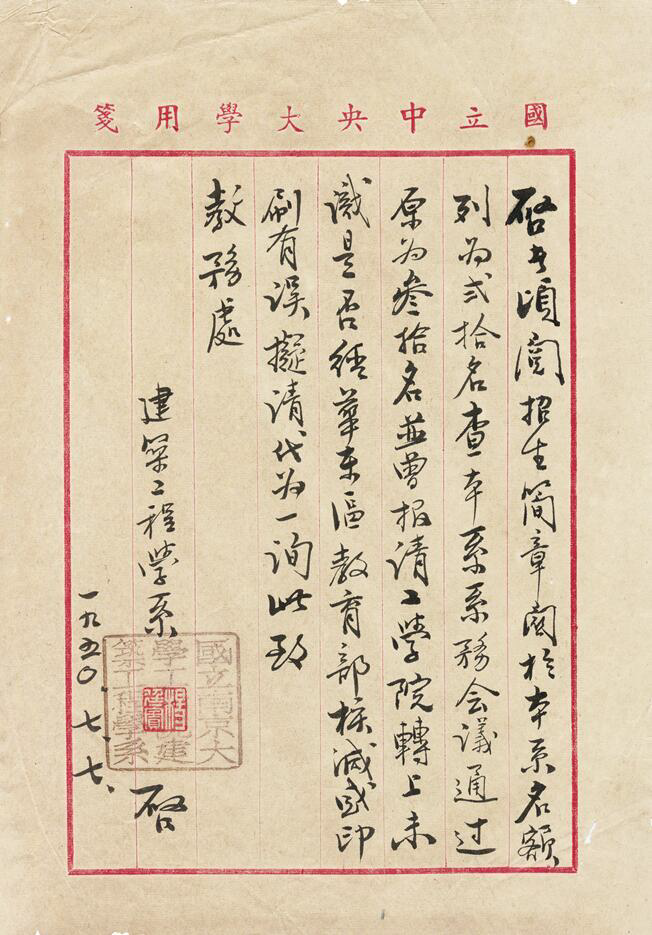 國立中央大學用箋
啓者頃閱招生簡章關於本系名額
列為弍拾名查本系系務會議通過
原為叁拾名並曾报请工學院轉上未
識是否經華東區教育部核減或印
刷有误擬请代為一詢此致
教務處
建築工程学系
啓
一九五〇.七.七.
國立南京大
學工院建
筑工程學系